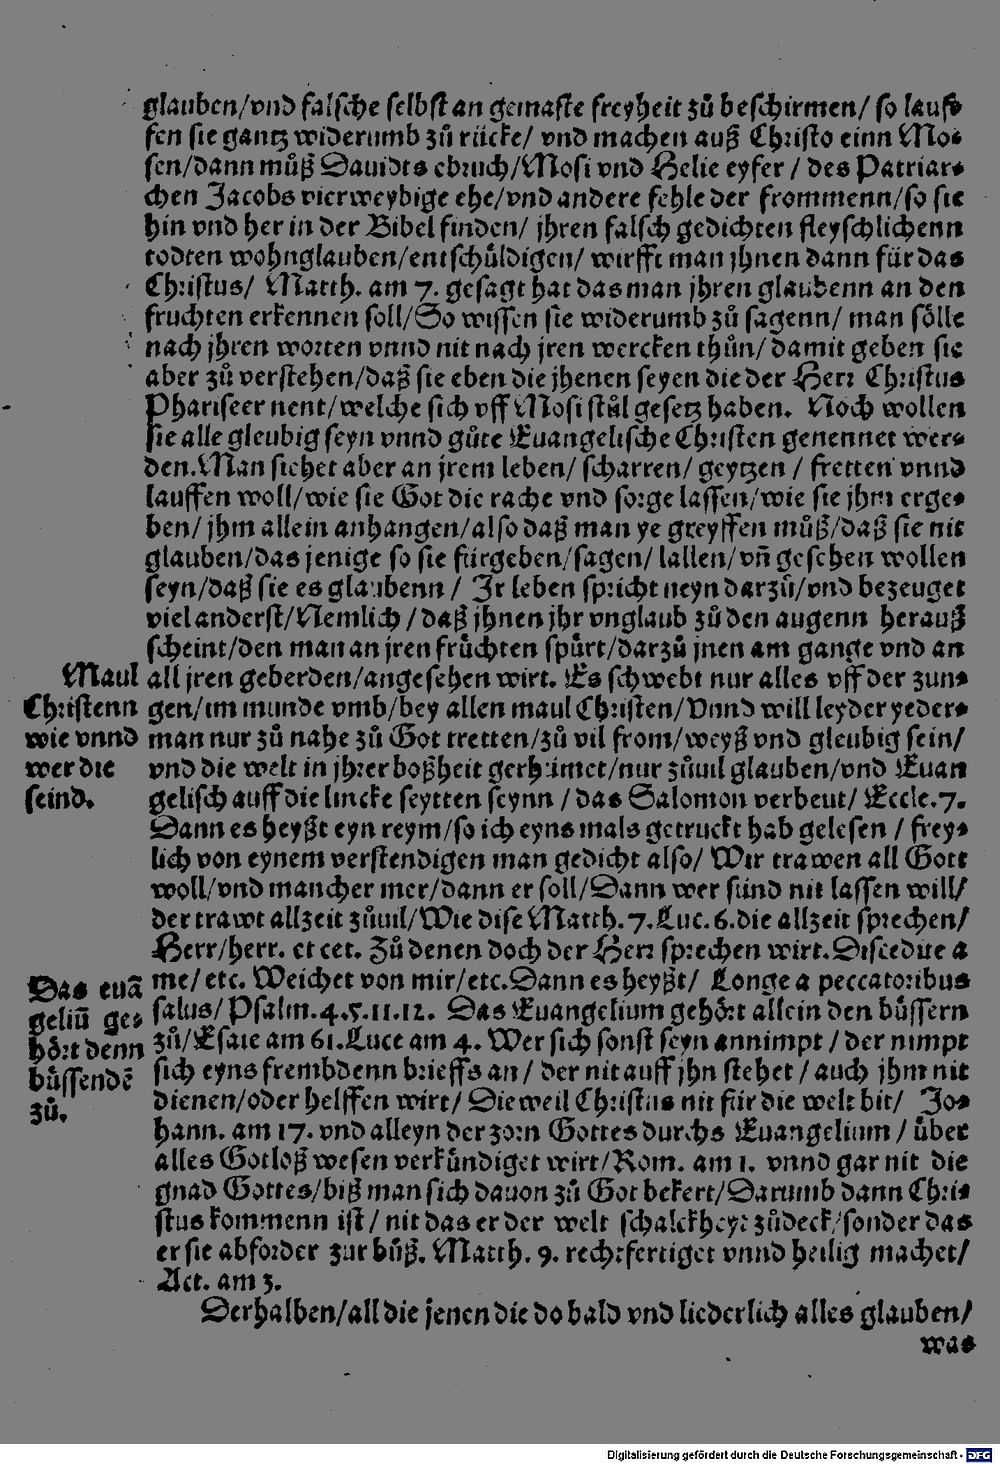 glauben/vnd falsche selbst an gemaste freyheit zů beschirmen/ so lauf⸗
fen sie gantz widerumb zů rücke/ vnd machen auß Christo einn Mo⸗
sen/dann můß Dauidts ebruch/Mosi vnd Helie eyfer / des Patriar⸗
chen Jacobs vierweybige ehe/vnd andere fehle der frommenn/so sie
hin vnd her in der Bibel finden/ jhren falsch gedichten fleyschlichenn
todten wohnglauben/entschüldigen/ wirfft man jhnen dann für das
Christus/ Matth. am 7. gesagt hat das man jhren glaubenn an den
fruchten erkennen soll/So wissen sie widerumb zů sagenn/ man sölle
nach jhren worten vnnd nit nach jren wercken thůn/ damit geben sie
aber zů verstehen/daß sie eben die jhenen seyen die der Herr Christus
Phariseer nent/welche sich vff Mosi stůl gesetz haben. Noch wollen
sie alle gleubig seyn vnnd gůte Euangelische Christen genennet wer⸗
den. Man siehet aber an jrem leben/ scharren/ geytzen / fretten vnnd
lauffen woll/wie sie Got die rache vnd sorge lassen/wie sie jhm erge⸗
ben/ jhm allein anhangen/also daß man ye greyffen můß/daß sie nit
glauben/das jenige so sie fürgeben/sagen/ lallen/vñ gesehen wollen
seyn/daß sie es glaubenn / Ir leben spricht neyn darzů/vnd bezeuget
viel anderst/Nemlich / daß jhnen jhr vnglaub zů den augenn herauß
scheint/den man an jren früchten spürt/darzů jnen am gange vnd an
all jren geberden/angesehen wirt. Es schwebt nur alles vff der zun⸗
gen/im munde vmb/bey allen maul Christen/Vnnd will leyder yeder⸗
man nur zů nahe zů Got tretten/zů vil from/weyß vnd gleubig sein/
vnd die welt in jhrer boßheit gerhümet/nur zůuil glauben/vnd Euan
gelisch auff die lincke seytten seynn / das Salomon verbeut/ Eccle.7.
Dann es heyßt eyn reym/so ich eyns mals getruckt hab gelesen / frey⸗
lich von eynem verstendigen man gedicht also/ Wir trawen all Gott
woll/vnd mancher mer/dann er soll/Dann wer sünd nit lassen will/
der trawt allzeit zůuil/Wie dise Matth. 7. Luc. 6. die allzeit sprechen/
Herr/herr. et cet. Zů denen doch der Herr sprechen wirt. Discedite a
me/ etc. Weichet von mir/etc. Dann es heyßt/ Longe a peccatoribus
salus/ Psalm. 4. 5. 11. 12. Das Euangelium gehört allein den büssern
zů/Esaie am 61. Luce am 4. Wer sich sonst seyn annimpt / der nimpt
sich eyns frembdenn brieffs an / der nit auff jhn stehet / auch jhm nit
dienen/oder helffen wirt/ Dieweil Christus nit für die welt bit/ Jo⸗
hann. am 17. vnd alleyn der zorn Gottes durchs Euangelium / über
alles Gotloß wesen verkündiget wirt/Rom. am 1. vnnd gar nit die
gnad Gottes/biß man sich dauon zů Got bekert/Darumb dann Chri⸗
stus kommenn ist / nit das er der welt schalckheyt zůdeck/sonder das
er sie abforder zur bůß. Matth. 9. rechtfertiget vnnd heilig machet/
Act. am 3.
Derhalben/all die jenen die do bald vnd liederlich alles glauben/
was
Maul
Christenn
wie vnnd
wer die
seind.
Das euã
geliũ ge⸗
hört denn
büssendẽ
zů.
Digitalisierung gefördert durch die Deutsche Forschungsgemeinschaft - DFG